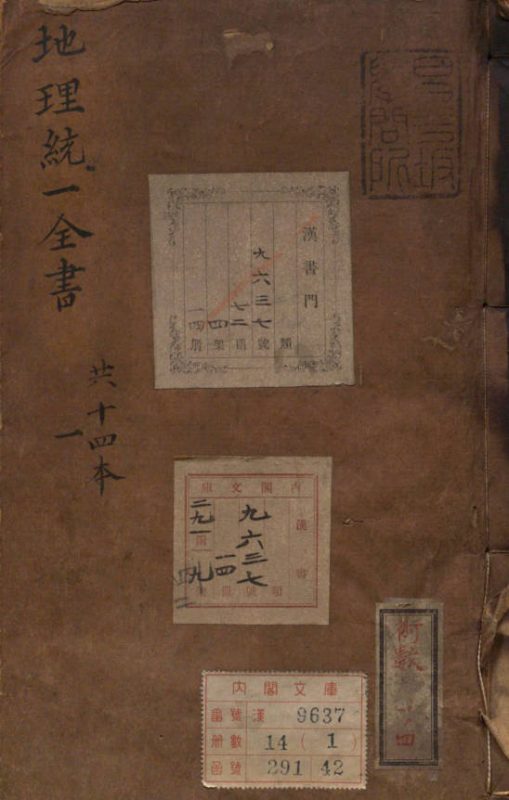 地理統一全書
共十四本
一
漢書門
九六三七
七二
四
一四
類
號
函
架
冊
內閣文庫
漢書
九六三七
一四
二九一
函
四二
術數
內閣文庫
番號 漢 9637
冊數 14 ( 1 )
函號 291 42